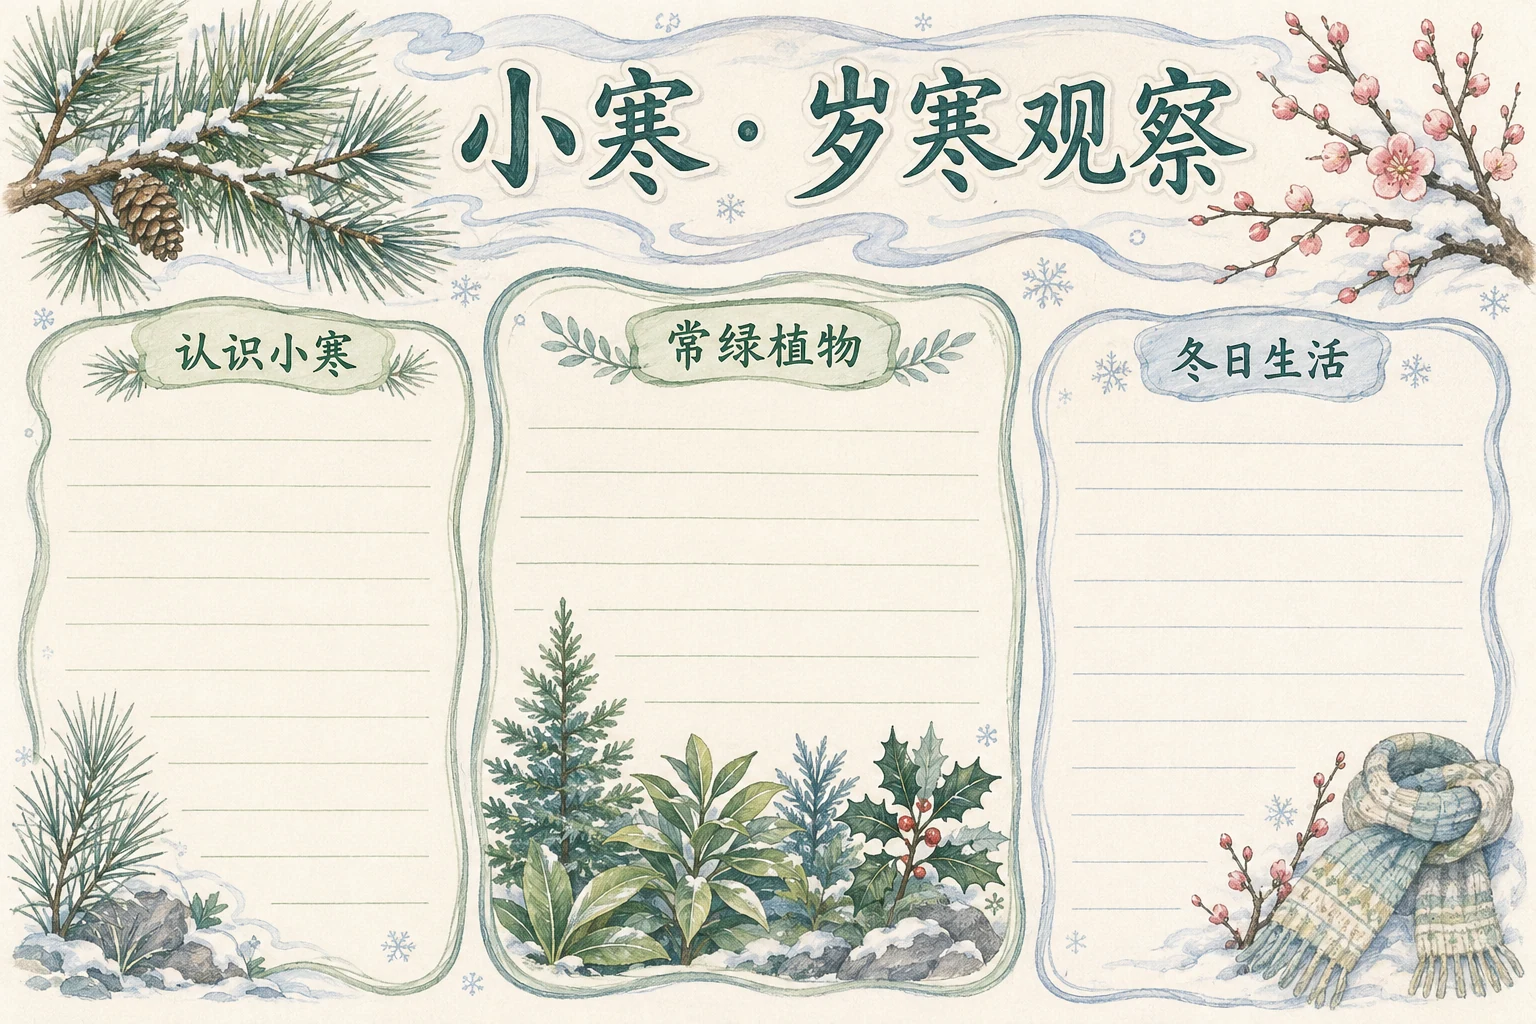 小寒·岁寒观察
认识小寒
常绿植物
冬日生活